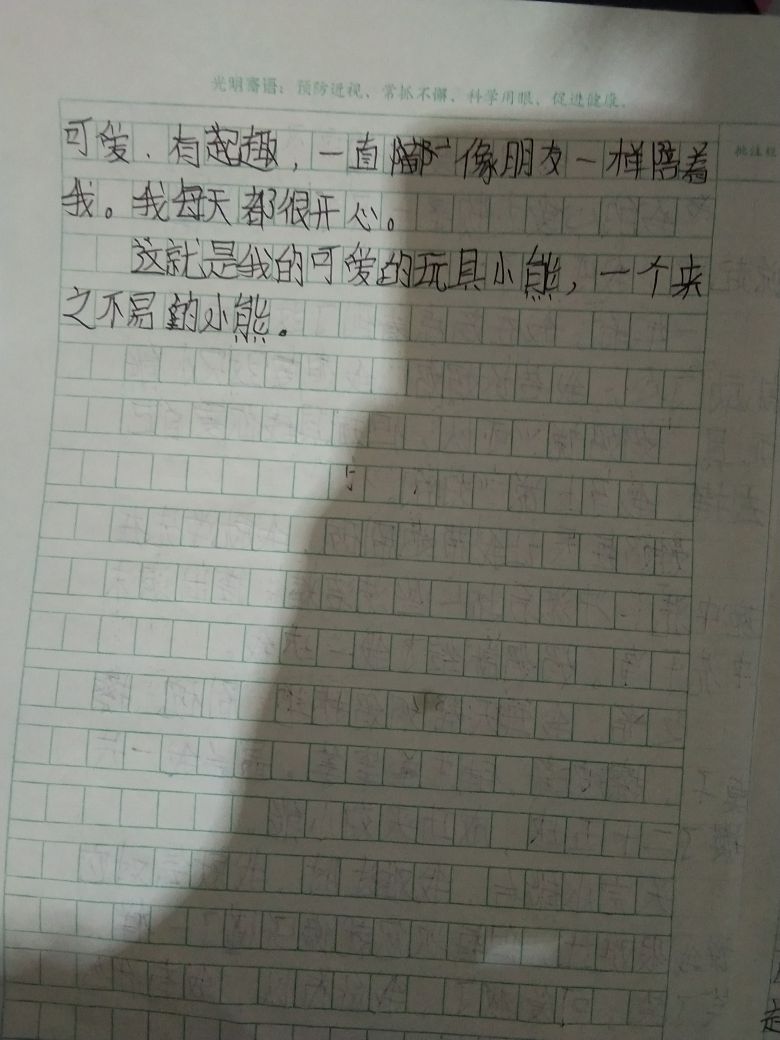 光明寄语：预防近视、常抓不懈、科学用眼、促进健康。
可爱．有起趣，一直都像朋友一样陪着
我。我每天都很开心。
这就是我的可爱的玩具小熊，一个来
之不易的小熊．